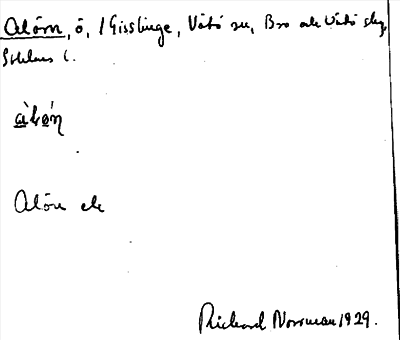 Alörn, ö, / Gisslinge, Vätö sn, Bro och Vätö skg,
Sthlms l.
Alörn ek
Rickard Norrman 1929.